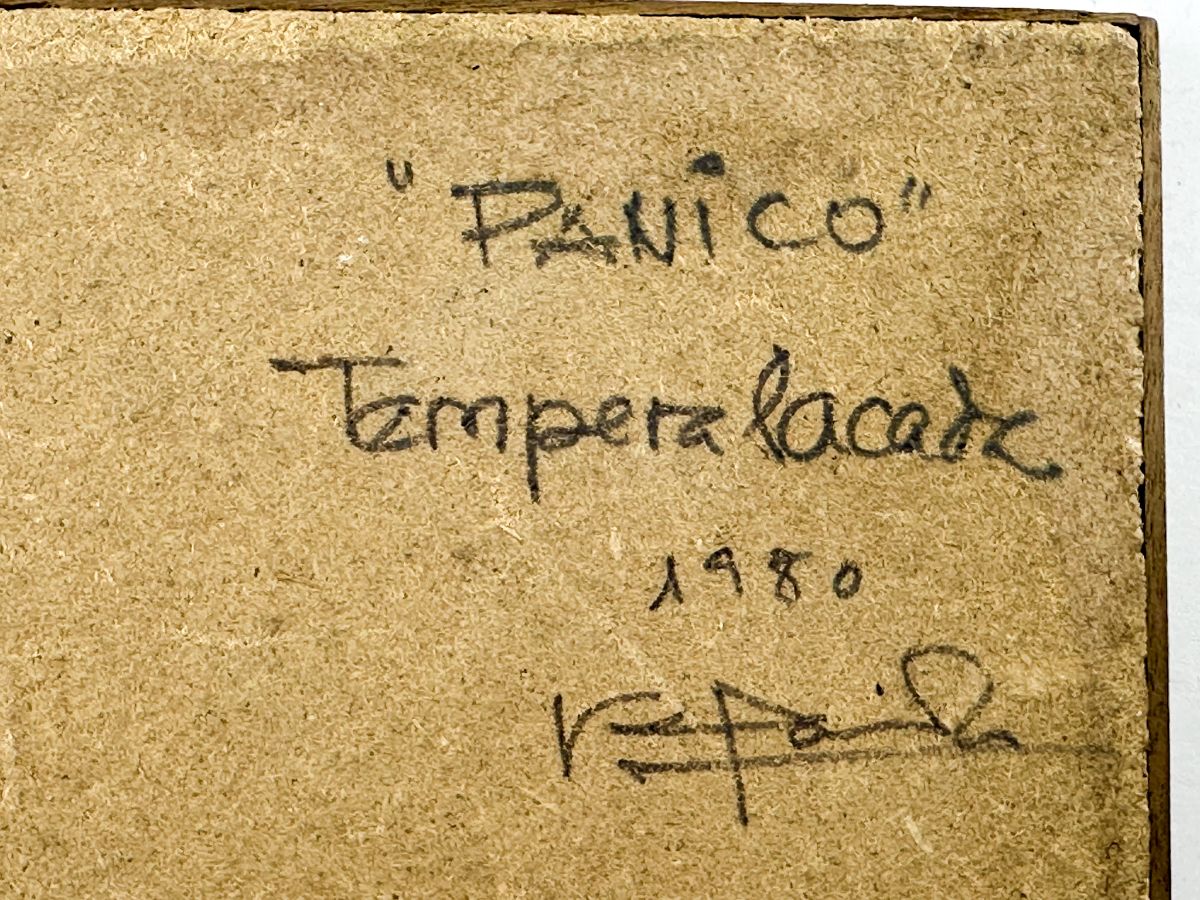 "PANiCO"
Tempera lacada
1980